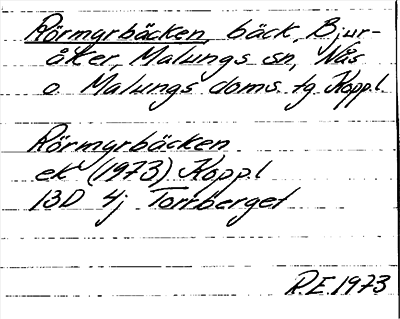 Rörmyrbäcken, bäck, Bjur-
åker, Malungs sn, Nås
o. Malungs doms. tg. Koppl.
Rörmyrbäcken
ek (1973) Koppl
13D 4j Torrberget
R.E. 1973